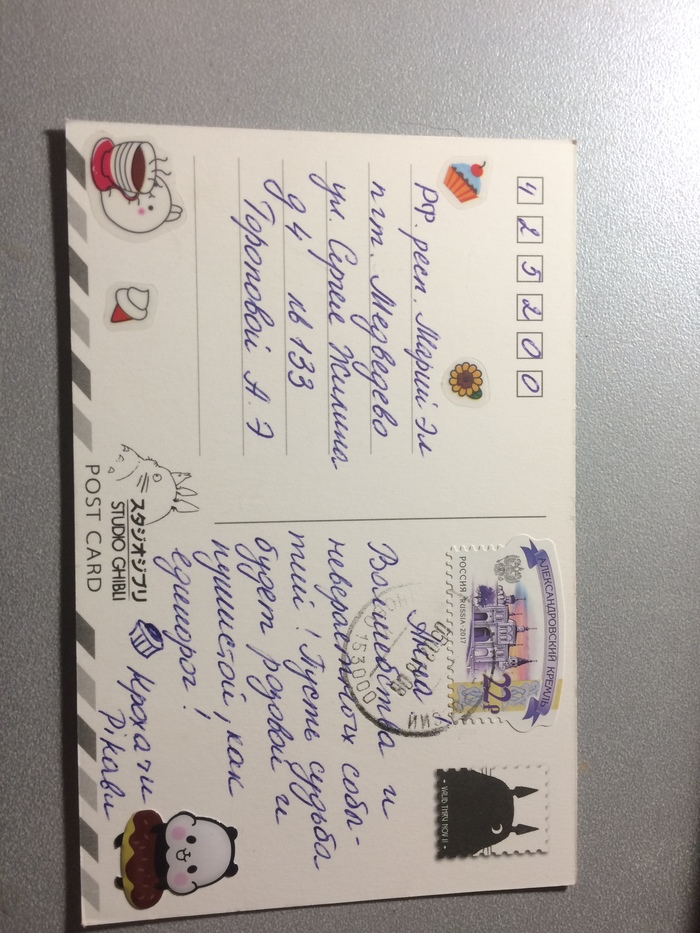 4 2 5 2 0 0
РФ. респ. Марий-Эл
пгт. Медведево
ул. Жилина
д 4 кв 133
Тороповой А. Э
АЛЕКСАНДРОВСКИЙ КРЕМЛЬ
22 Р
РОССИЯ / RUSSIA · 2017
153000
Анна!
Волшебства и
невероятных собы-
тий! Пусть судьба
будет розовой и
пушистой, как
единорог!
スタジオジブリ
STUDIO GHIBLI
POST CARD